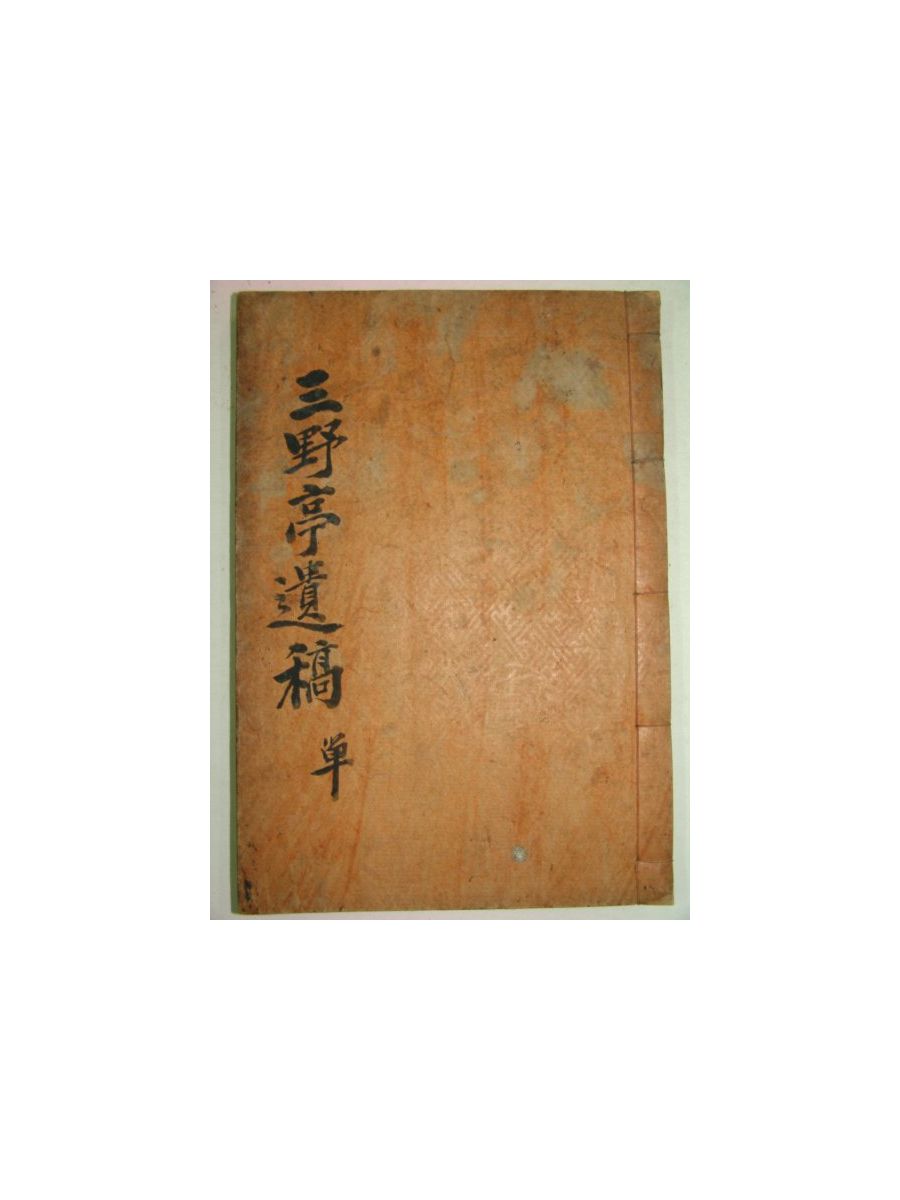 三野亭遺稿
単